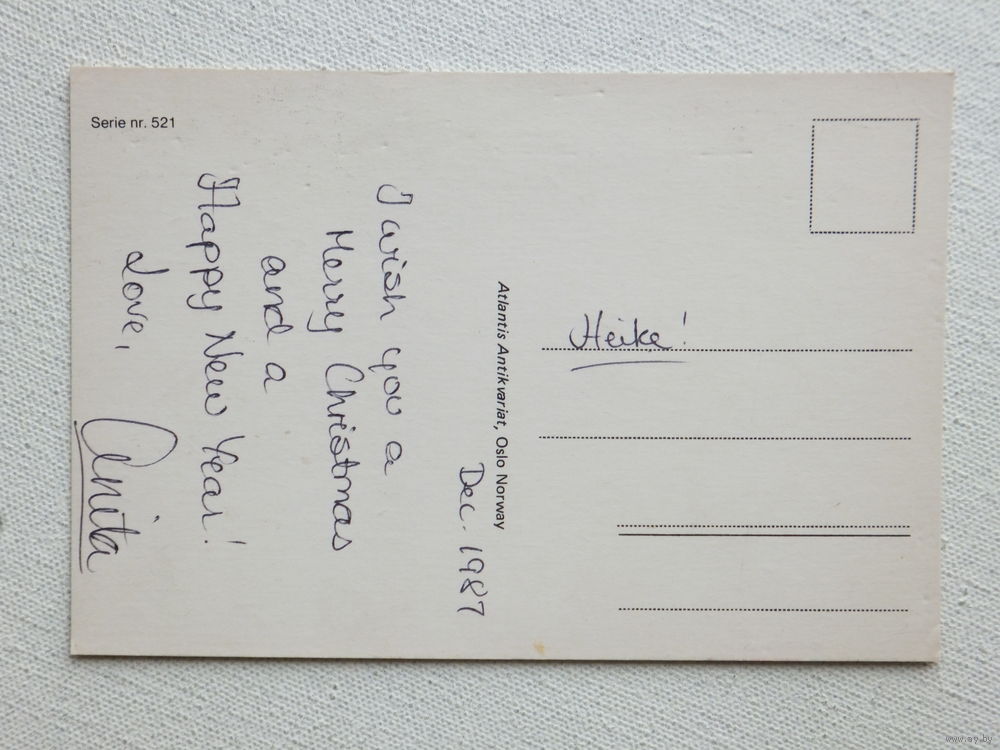 Serie nr. 521
Dec. 1987
I wish you a
Merry Christmas
and a
Happy New Year!
Love,
Anita
Atlantis Antikvariat, Oslo Norway
Heike!
www.ay.by